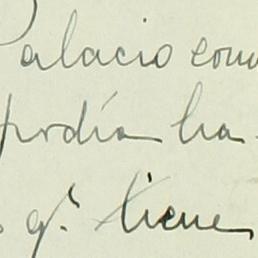 Palacio con
podía ha-
q.e tiene